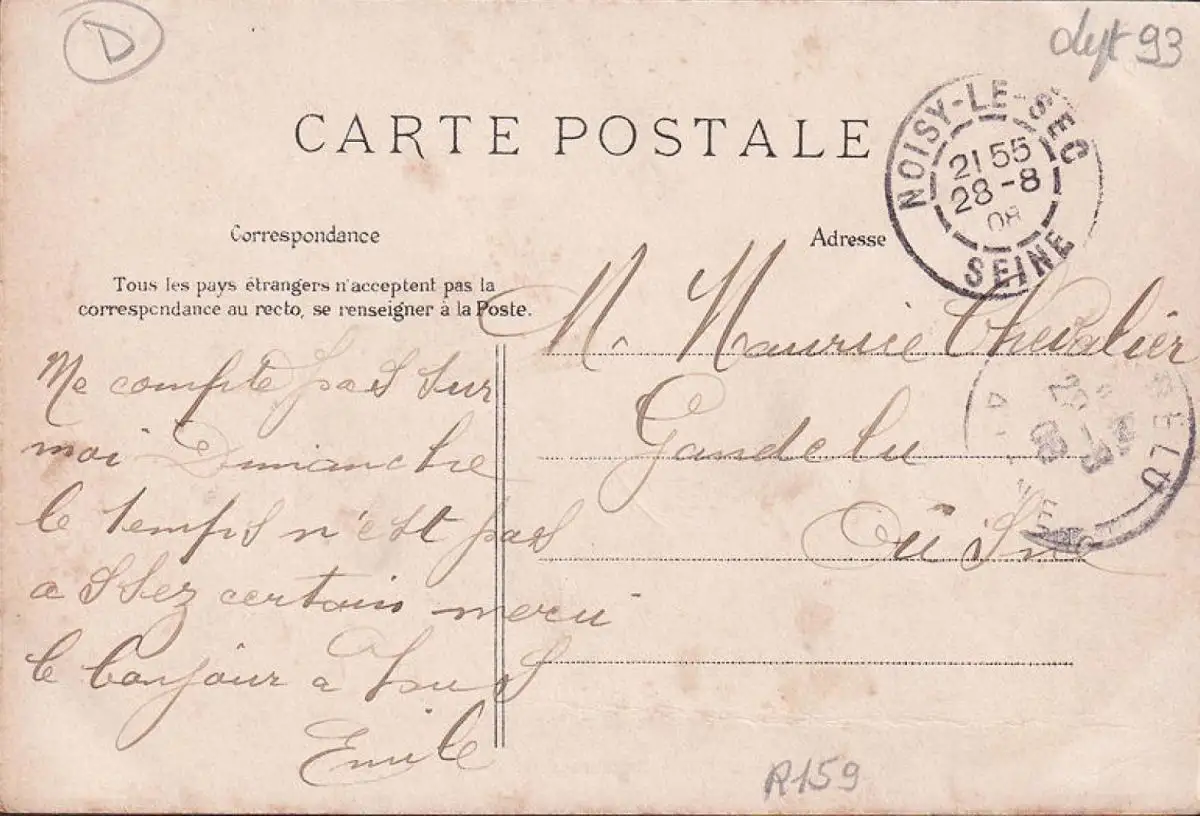 D
dept 93
CARTE POSTALE
NOISY-LE-SEC
21 55
28-8
08
SEINE
Correspondance
Tous les pays étrangers n'acceptent pas la
correspondance au recto, se renseigner à la Poste.
Adresse
Ne compte pas sur
moi Dimanche
le temps n'est pas
assez certain merci
le bonjour a tous
Emile
M. Maurice Chevalier
Gandelu
Aisne
R159